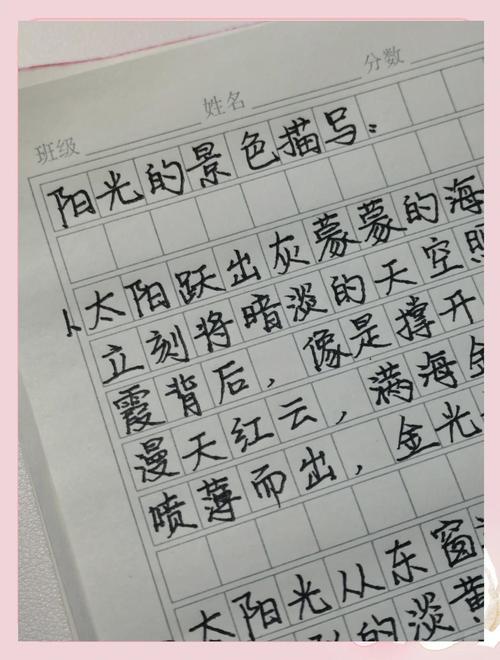 班级 姓名 分数
阳光的景色描写：
1、太阳跃出灰蒙蒙的海
立刻将暗淡的天空照
霞背后，像是撑开
漫天红云，满海金
喷薄而出，金光
太阳光从东窗
的淡黄